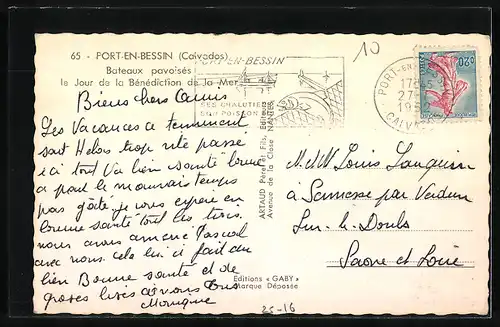 65 - PORT-EN-BESSIN (Calvados)
Bateaux pavoisés
le Jour de la Bénédiction de la Mer
10
PORT-EN-BESSIN
SES CHALUTIERS
SON POISSON
PORT-EN-
CALV
Biens chers Amis
Les Vacances se terminent
sait Helas trop vite passe
ici tout va bien santé bonne
a part le mauvais temps
pas gâté, je vous espère en
bonne santé tout les trois.
nous avons amené Pascal
avec nous. cela lui fait du
bien Bonne santé et de
grosses bises à vous tous
Monique
ARTAUD Père et Fils, Editeurs
Avenue de la Close NANTES
M. M Louis
à par Verdun
Sur-le-Doubs
Saone et Loire
Editions « GABY »
Marque Déposée
25-16